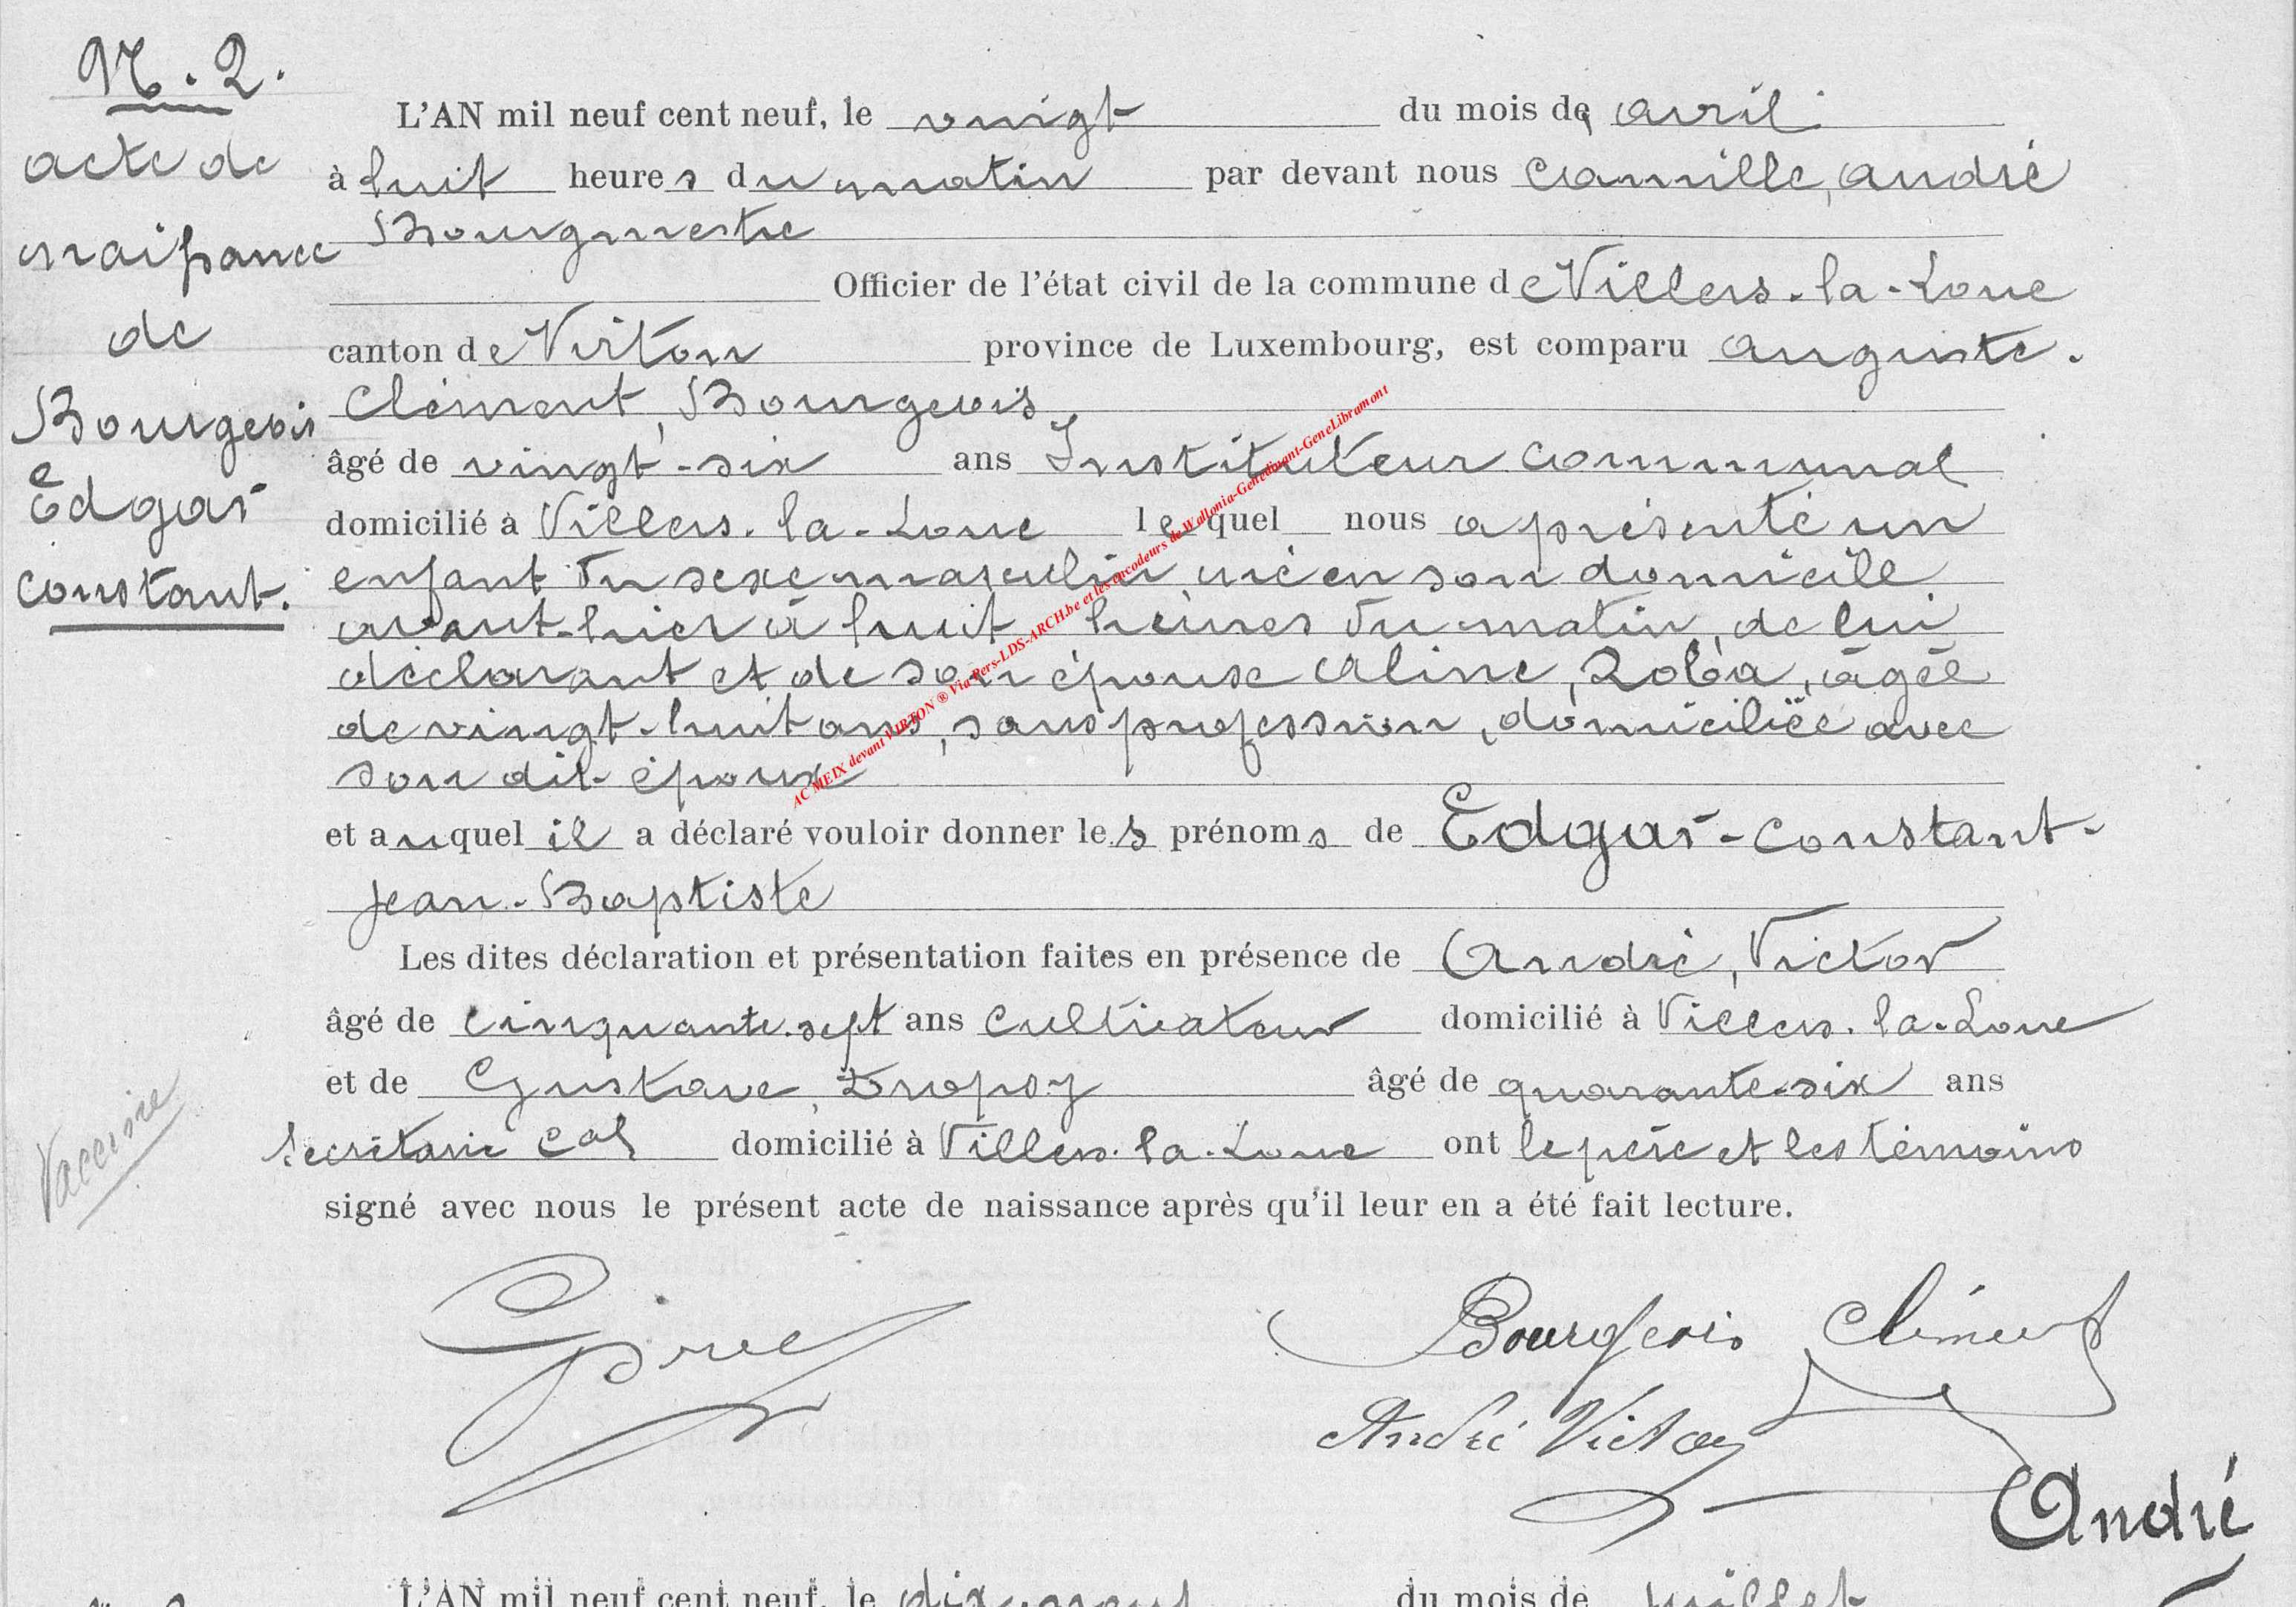 N. 2.
acte de
naissance
de
Bourgeois
Edgar
Constant.
L'AN mil neuf cent neuf, le vingt du mois de avril
à huit heures du matin par devant nous Camille, André
Bourgmestre
Officier de l'état civil de la commune de Villers-la-Loue
canton de Virton province de Luxembourg, est comparu Auguste.
Clément, Bourgeois
âgé de vingt-six ans Instituteur communal
domicilié à Villers-la-Loue lequel nous a présenté un
enfant du sexe masculin, né en son domicile
avant-hier à huit heures du matin, de lui
déclarant et de son épouse Aline, Roba, âgée
de vingt-huit ans, sans profession, domiciliée avec
son dit époux
et auquel il a déclaré vouloir donner les prénoms de Edgar-Constant-
Jean-Baptiste
Les dites déclaration et présentation faites en présence de André, Victor
âgé de cinquante-sept ans cultivateur domicilié à Villers-la-Loue
et de Gustave, Dropsy âgé de quarante-six ans
secrétaire cal domicilié à Villers-la-Loue ont le père et les témoins
signé avec nous le présent acte de naissance après qu'il leur en a été fait lecture.
Vaccine
Bourgeois Clément
André Victor
André
AC MEIX devant VIRTON ® Via Pers-LDS-ARCH.be et les encodeurs de Wallonia-Genedinant-GeneLibramont
L'AN mil neuf cent neuf, le dix-neuf du mois de juillet